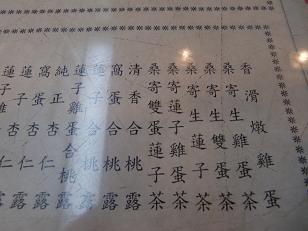 香滑燉雞蛋
桑寄生雞蛋茶
桑寄生雙蛋茶
桑寄生蓮子茶
桑寄蓮子雞蛋茶
桑寄雙蛋蓮子茶
清香合桃露
窩蛋合桃露
蓮子合桃露
蓮子雞蛋合桃露
純正杏仁露
窩蛋杏仁露
蓮子杏仁露